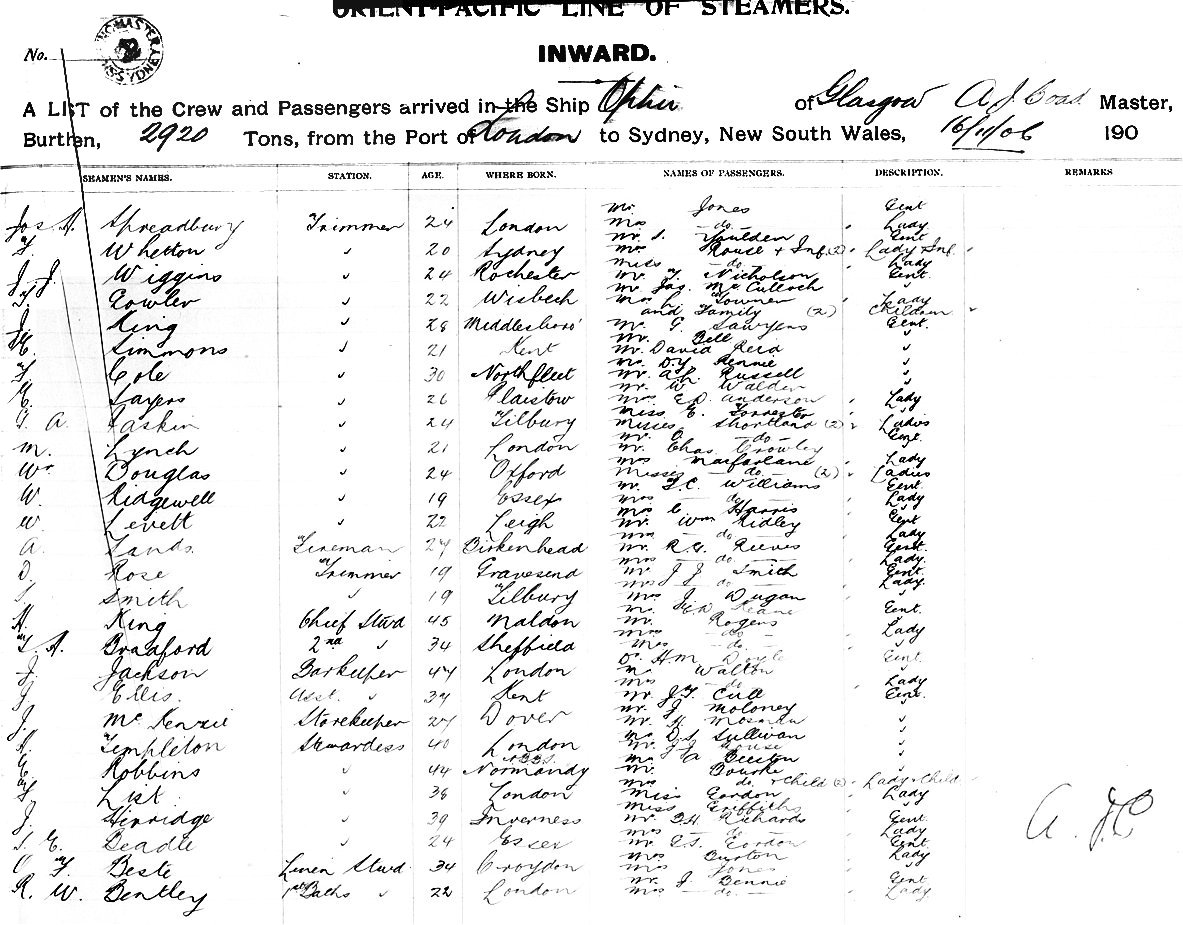 ORIENT-PACIFIC LINE OF STEAMERS.
No.
INWARD.
A LIST of the Crew and Passengers arrived in the Ship Ophir of Glasgow A. J. Coad Master,
Burthen, 2920 Tons, from the Port of London to Sydney, New South Wales, 16/11/06 190
SEAMEN'S NAMES. STATION. AGE. WHERE BORN. NAMES OF PASSENGERS. DESCRIPTION. REMARKS
Jos A. Spreadbury Trimmer 24 London
Whetton 20 Sydney
Wiggins 24 Rochester
Gowler 22 Wisbech
King 28 Middlesboro'
Simmons 21 Kent
Cole 30 Northfleet
Sayers 26 Plaistow
Gaskin 24 Tilbury
M. Lynch 21 London
Wm Douglas 24 Oxford
W. Ridgewell 19 Essex
W. Levett 22 Leigh
A. Sands Fireman 27 Birkenhead
Rose Trimmer 19 Gravesend
Smith 19 Tilbury
King Chief Stwd 45 Maldon
Bradford 2nd 34 Sheffield
J. Jackson Barkeeper 47 London
Ellis Asst. 34 Kent
J. McKenzie Storekeeper 27 Dover
Templeton Stewardess 40 London
Robbins 44 Normandy
List 36 London
Herridge 39 Inverness
Beadle 24 Essex
Beste Linen Stwd 34 Croydon
R. W. Bentley Baths 22 London
Mr. Jones Gent
Mrs do Lady
Mr. S. Moulden Gent
Mrs Rouse & Inf (2) Lady & Inf.
Miss do Lady
Mr. T. Nicholson Gent.
Mr. Jas. McCulloch
Mrs Towner Lady
and Family (2) Children
Mr. G. Sawyers Gent.
Mr. Bell
Mr. David Reid
Mr. D. Y. Rennie
Mr. Russell
Mr. W. Walder
Mrs E. D. Anderson Lady
Miss E. Forrester
Misses Shortland (2) Ladies
Mr. O. do Gent.
Mr. Chas. Crowley
Mrs Macfarlane Lady
Misses do (2) Ladies
Mr. F. C. Williams Gent
Mrs do Lady
Mrs C. Harris
Mr. Wm Ridley Gent
Mrs do Lady
Mr. R. G. Reeves Gent.
Mrs do Lady.
Mr. J. J. Smith Gent
Mrs Lady.
Mrs J. Dugan
Mr. Keane Gent.
Mr. Rogers
Mrs do Lady
Mrs do
Dr. H. M. Doyle Gent
Mr Walton
Mrs do Lady
Mr. J. F. Cull Gent.
Mr. J. Moloney
Mr. H. Mosman
Mr. D. S. Sullivan
Mr. J. J. Rouse
Mr A. Beeston
Mr. Bourke
Mrs do & Child (2) Lady & Child
Miss Gordon Lady
Miss Griffiths
Mr. Richards Gent
Mrs do Lady
Mr. Gordon Gent.
Mrs Burton Lady
Mrs Jones
Mr. J. Bennie Gent
Mrs do Lady.
A. J. C